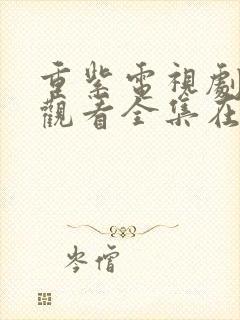 重紫電視劇
觀看全集在
岑僧